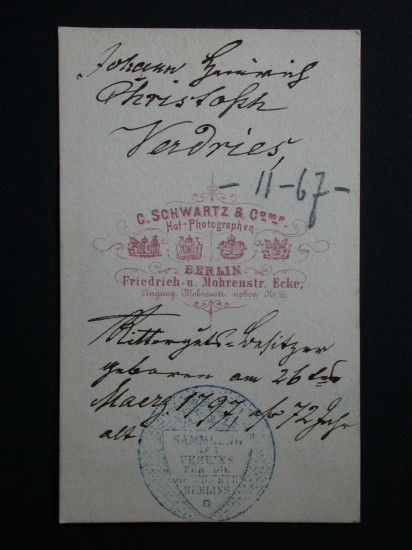 Johann Heinrich
Christoph
Verdries,
- 11-67-
C. SCHWARTZ & COMP.
Hof-Photographen
BERLIN
Friedrich- u. Mohrenstr. Ecke,
Eingang Mohrenstr. neben No
Rittergüts-Besitzer
geboren am 26
Maerz 1797, 72 Jahr
alt
SAMMLUNG
DES
VEREINS
FÜR DIE
BERLINS